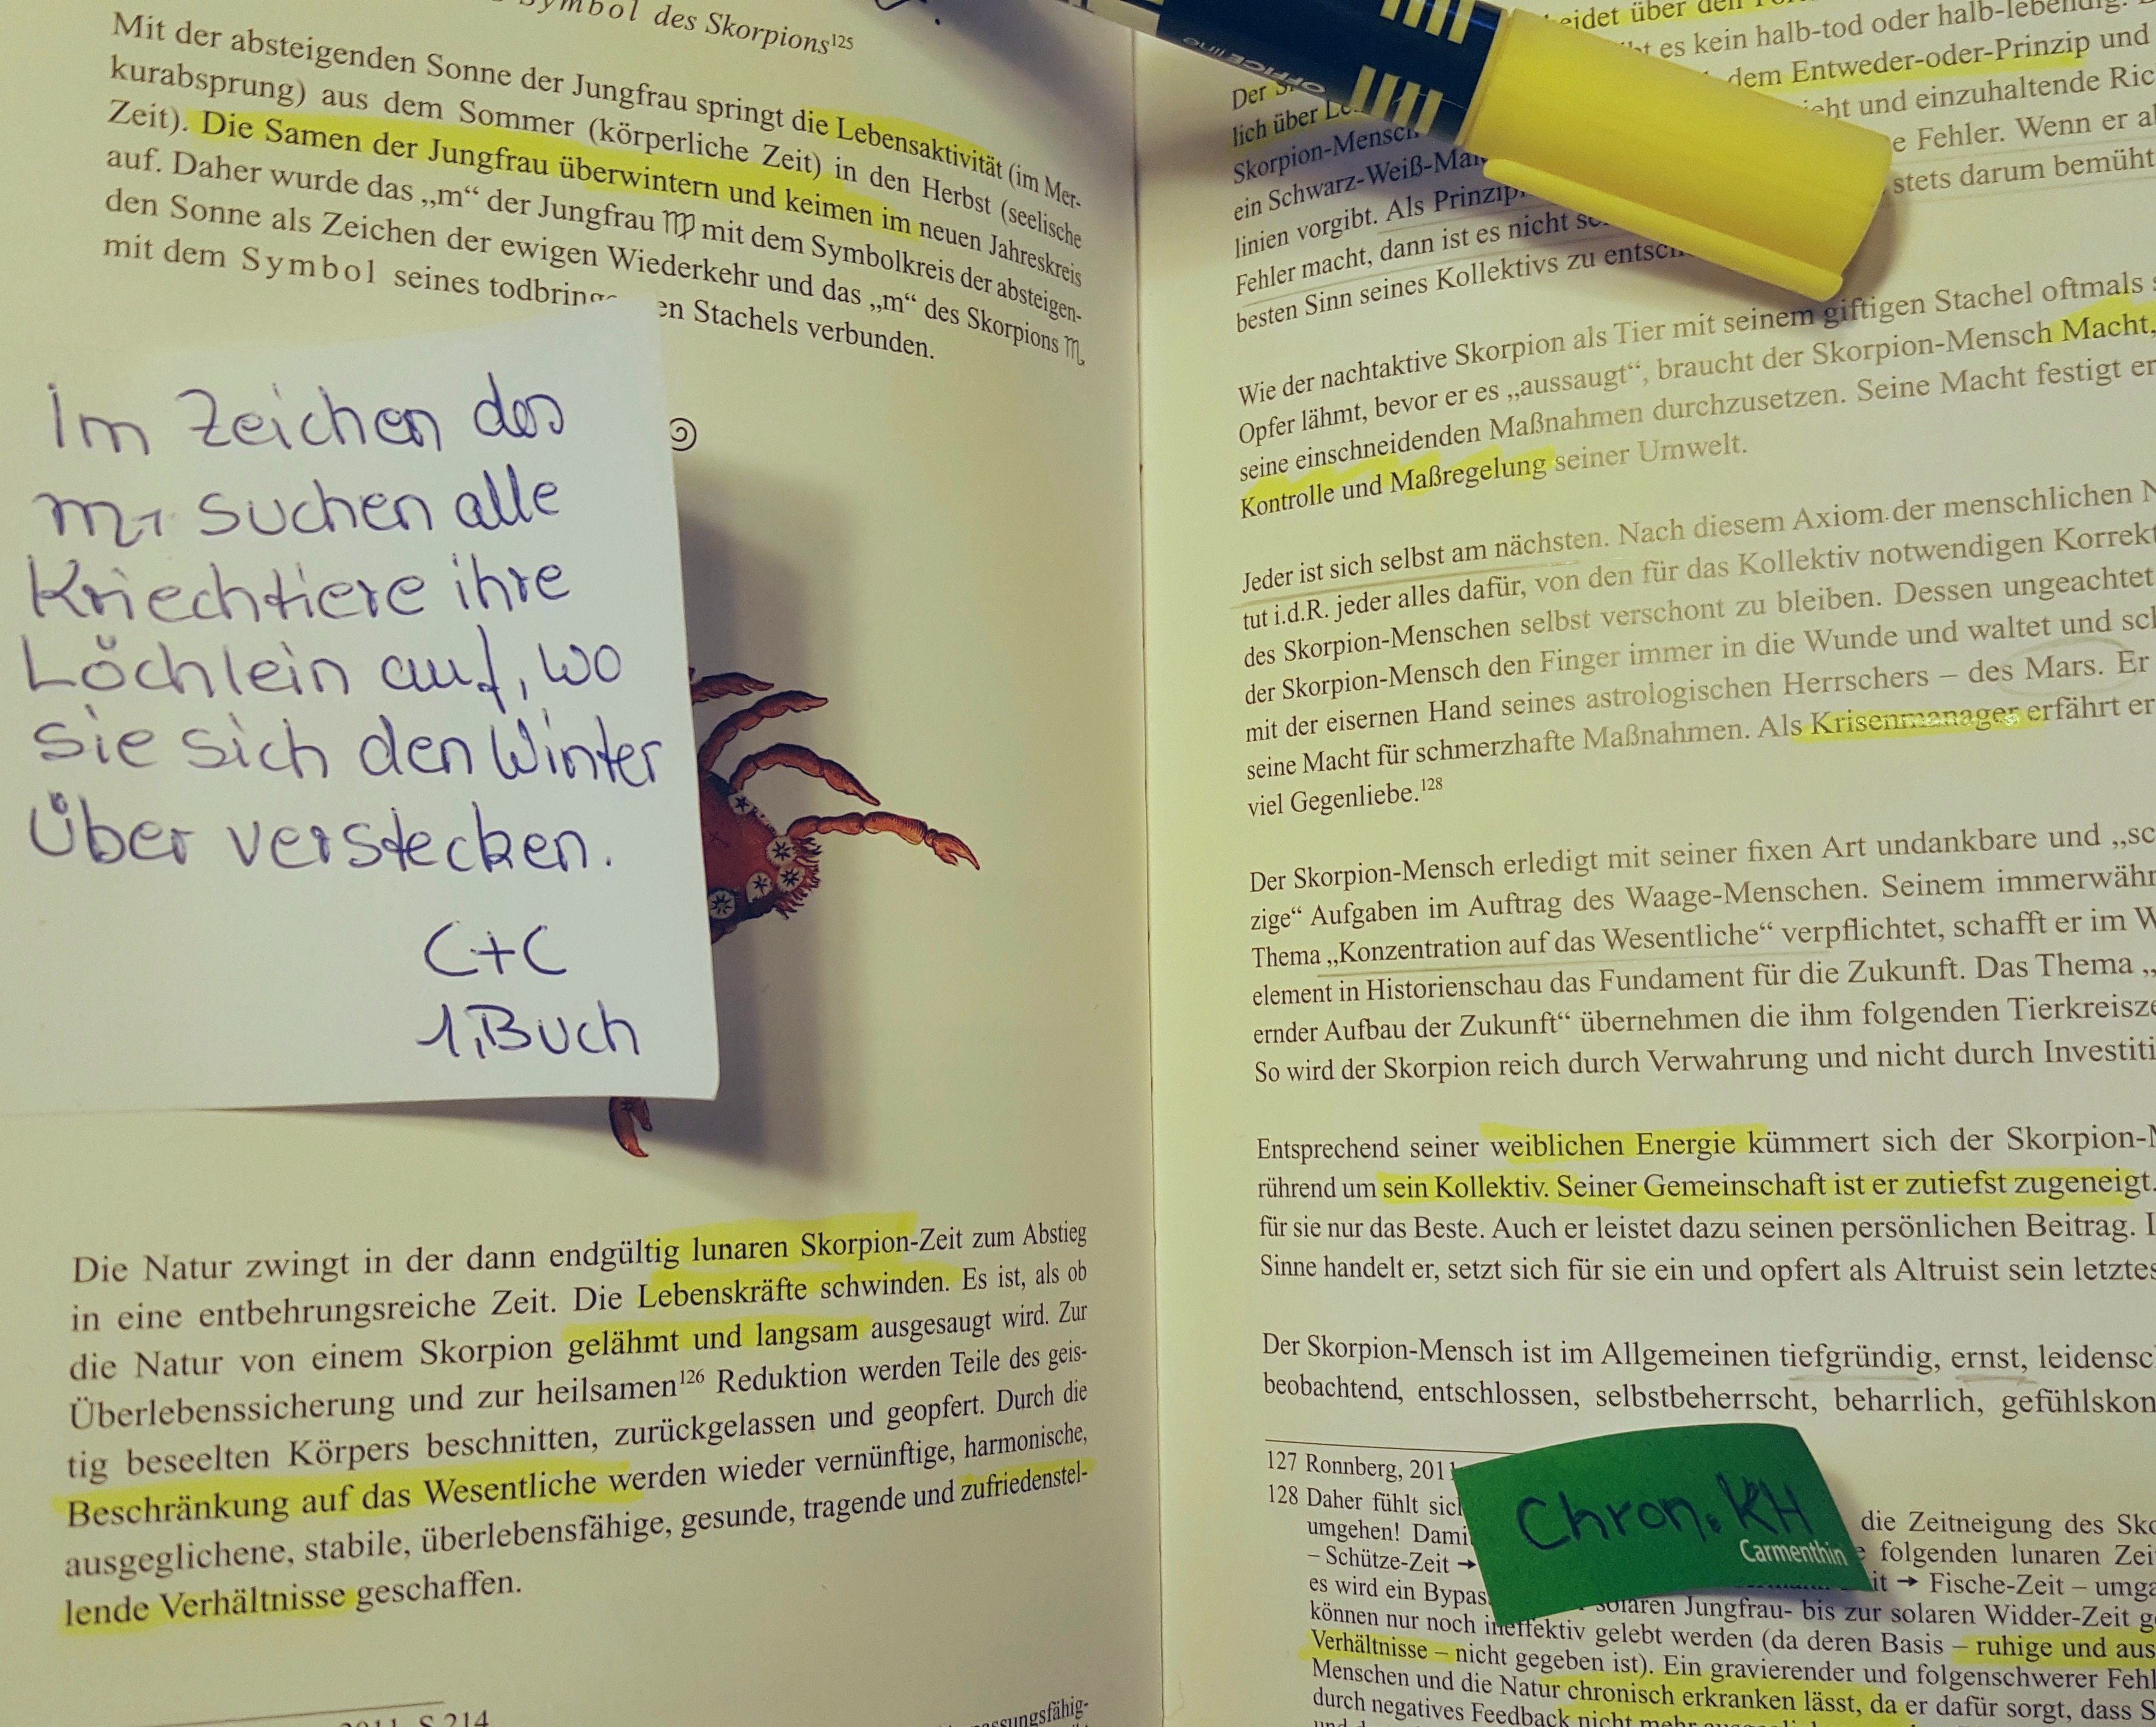 Symbol des Skorpions125
Mit der absteigenden Sonne der Jungfrau springt die Lebensaktivität (im Mer-
kurabsprung) aus dem Sommer (körperliche Zeit) in den Herbst (seelische
Zeit). Die Samen der Jungfrau überwintern und keimen im neuen Jahreskreis
auf. Daher wurde das „m“ der Jungfrau ♍ mit dem Symbolkreis der absteigen-
den Sonne als Zeichen der ewigen Wiederkehr und das „m“ des Skorpions ♏
mit dem Symbol seines todbring en Stachels verbunden.
Im Zeichen des
♏ suchen alle
Kriechtiere ihre
Löchlein auf, wo
sie sich den Winter
über verstecken.
C+C
1. Buch
Die Natur zwingt in der dann endgültig lunaren Skorpion-Zeit zum Abstieg
in eine entbehrungsreiche Zeit. Die Lebenskräfte schwinden. Es ist, als ob
die Natur von einem Skorpion gelähmt und langsam ausgesaugt wird. Zur
Überlebenssicherung und zur heilsamen126 Reduktion werden Teile des geis-
tig beseelten Körpers beschnitten, zurückgelassen und geopfert. Durch die
Beschränkung auf das Wesentliche werden wieder vernünftige, harmonische,
ausgeglichene, stabile, überlebensfähige, gesunde, tragende und zufriedenstel-
lende Verhältnisse geschaffen.
2011, S.214
ssungsfähig-
OFFICE line
eidet über den
es kein halb-tod oder halb-lebendig.
Der
dem Entweder-oder-Prinzip und
lich über
eht und einzuhaltende Ric
Skorpion-Mensch
e Fehler. Wenn er
ein Schwarz-Weiß-
stets darum bemüht
linien vorgibt. Als
Fehler macht, dann ist es nicht
besten Sinn seines Kollektivs zu
Wie der nachtaktive Skorpion als Tier mit seinem giftigen Stachel oftmals
Opfer lähmt, bevor er es „aussaugt“, braucht der Skorpion-Mensch Macht,
seine einschneidenden Maßnahmen durchzusetzen. Seine Macht festigt er
Kontrolle und Maßregelung seiner Umwelt.
Jeder ist sich selbst am nächsten. Nach diesem Axiom der menschlichen N
tut i.d.R. jeder alles dafür, von den für das Kollektiv notwendigen Korrekt
des Skorpion-Menschen selbst verschont zu bleiben. Dessen ungeachtet
der Skorpion-Mensch den Finger immer in die Wunde und waltet und sc
mit der eisernen Hand seines astrologischen Herrschers – des Mars. Er
seine Macht für schmerzhafte Maßnahmen. Als Krisenmanager erfährt er
viel Gegenliebe.128
Der Skorpion-Mensch erledigt mit seiner fixen Art undankbare und „sc
zige“ Aufgaben im Auftrag des Waage-Menschen. Seinem immerwähr
Thema „Konzentration auf das Wesentliche“ verpflichtet, schafft er im W
element in Historienschau das Fundament für die Zukunft. Das Thema „
ernder Aufbau der Zukunft“ übernehmen die ihm folgenden Tierkreisze
So wird der Skorpion reich durch Verwahrung und nicht durch Investiti
Entsprechend seiner weiblichen Energie kümmert sich der Skorpion-M
rührend um sein Kollektiv. Seiner Gemeinschaft ist er zutiefst zugeneigt.
für sie nur das Beste. Auch er leistet dazu seinen persönlichen Beitrag. I
Sinne handelt er, setzt sich für sie ein und opfert als Altruist sein letztes
Der Skorpion-Mensch ist im Allgemeinen tiefgründig, ernst, leidensc
beobachtend, entschlossen, selbstbeherrscht, beharrlich, gefühlskon
127 Ronnberg, 2011
128 Daher fühlt sic
die Zeitneigung des Sko
umgehen! Dami
folgenden lunaren Zei
– Schütze-Zeit →
it → Fische-Zeit – umga
es wird ein Bypas
solaren Jungfrau- bis zur solaren Widder-Zeit g
Chron. KH
Carmenthin
können nur noch ineffektiv gelebt werden (da deren Basis – ruhige und aus
Verhältnisse – nicht gegeben ist). Ein gravierender und folgenschwerer Fehl
Menschen und die Natur chronisch erkranken lässt, da er dafür sorgt, dass S
durch negatives Feedback nicht mehr